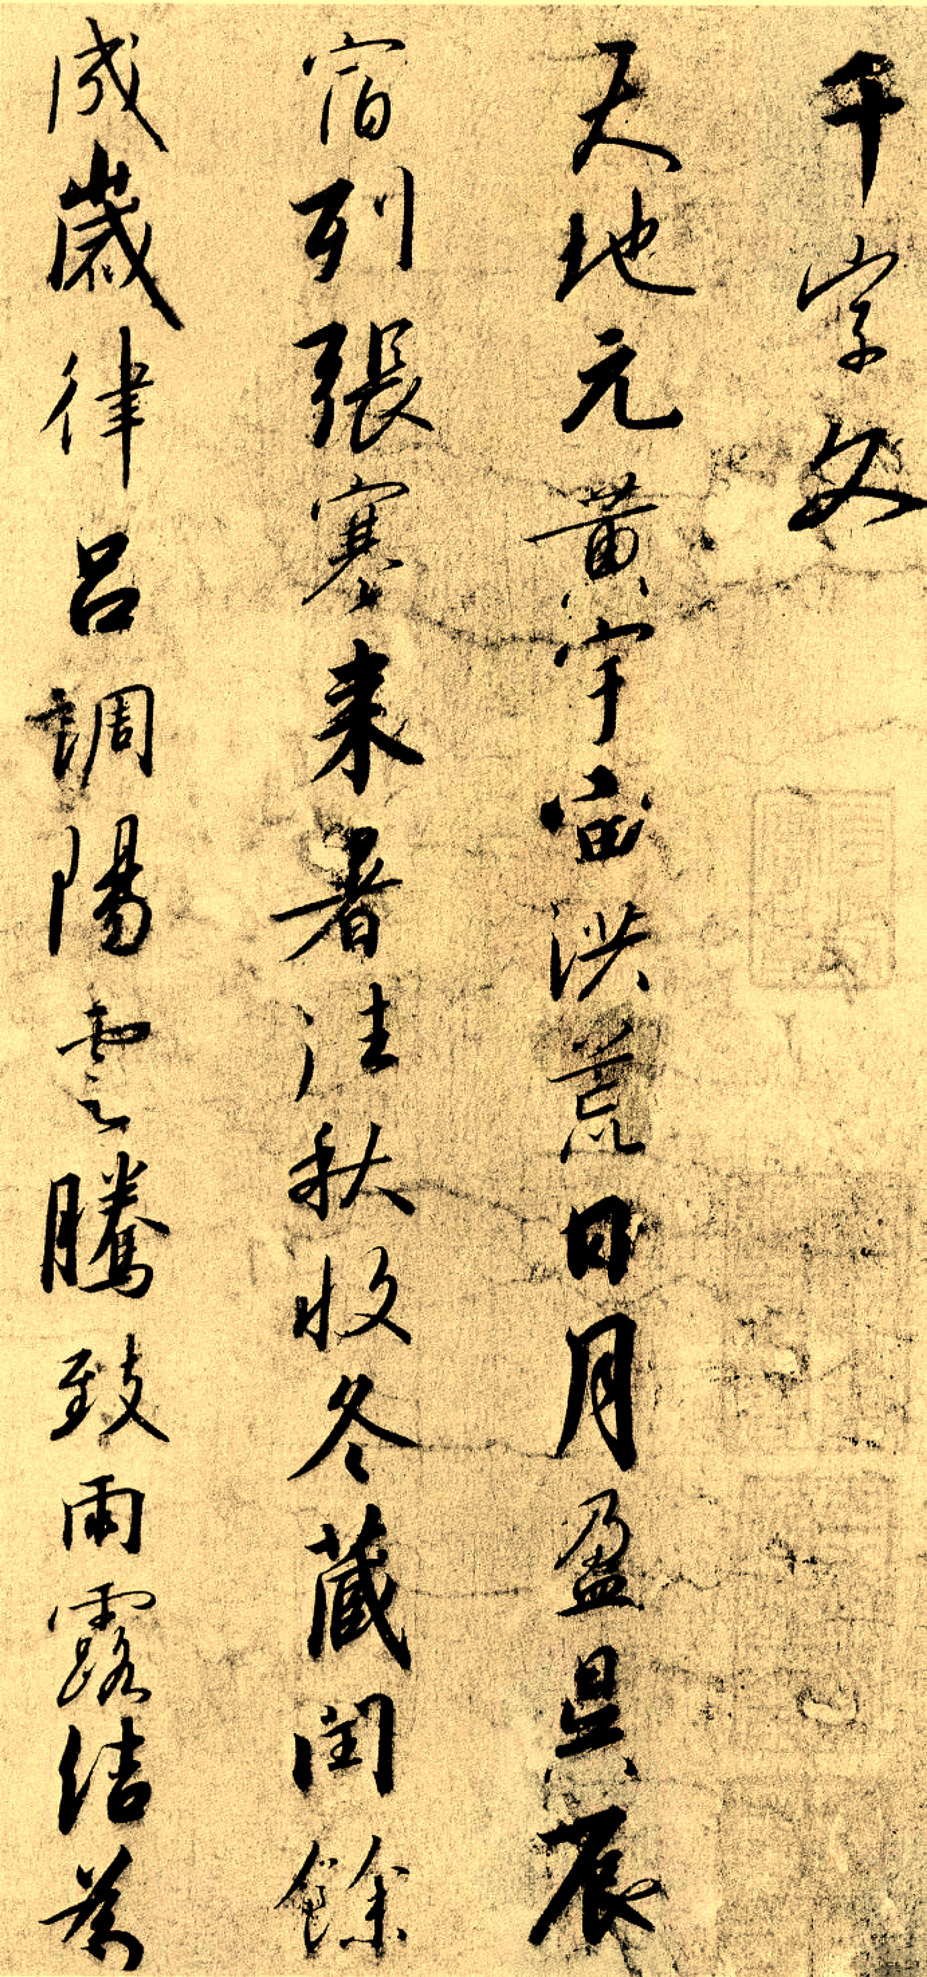 千字文
天地元黄宇宙洪荒日月盈昃辰
宿列張寒来暑往秋收冬藏閏餘
成歲律吕調陽雲騰致雨露結爲